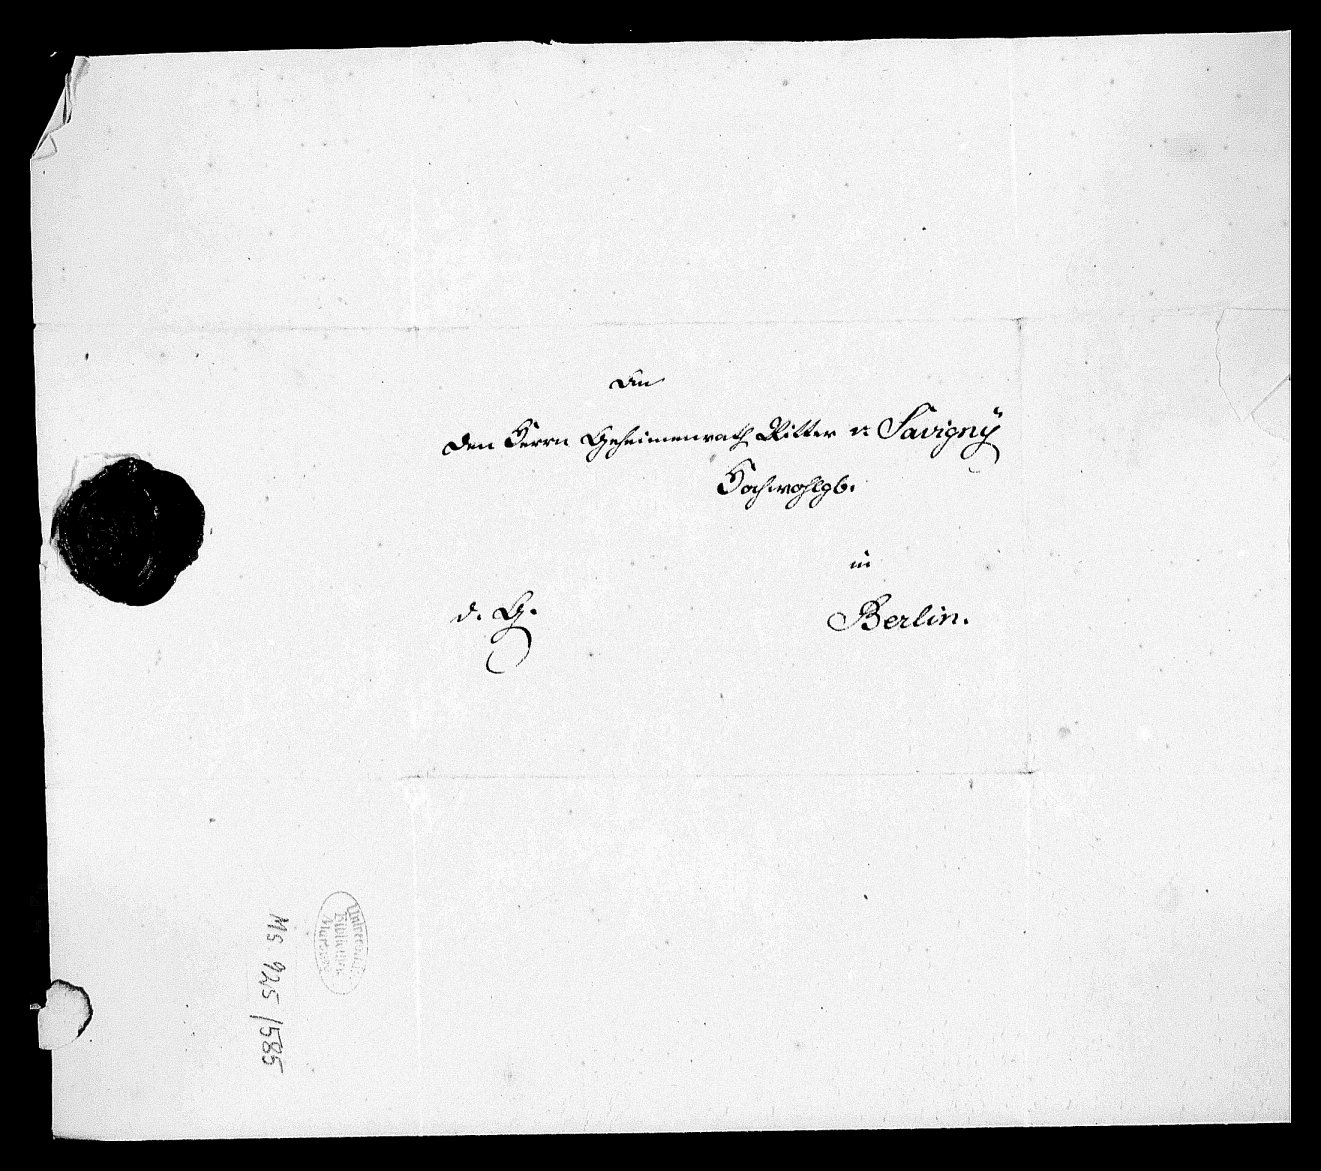 An
den Herrn Geheimenrath Ritter v. Savigny
Hochwohlgb.
in
Berlin.
d. G.
Universitäts
Bibliothek
Marburg
Ms. 925/585